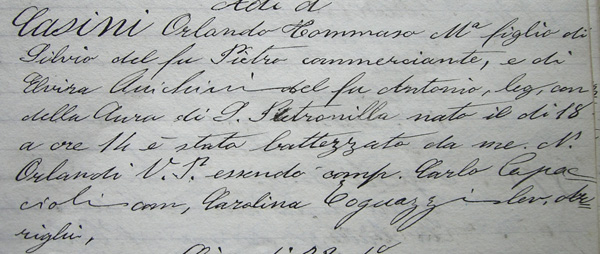 Adi d
Casini Orlando Tommaso Mª figlio di
Silvio del fu Pietro commerciante, e di
Elvira del fu Antonio, leg, con
della Cura di S. Petronilla nato il di 18
a ore 14 è stato battezzato da me. N.
Orlandi V. Pº essendo comp. Carlo Capac=
cioli com, Carolina Cognazzi lev.
righi,